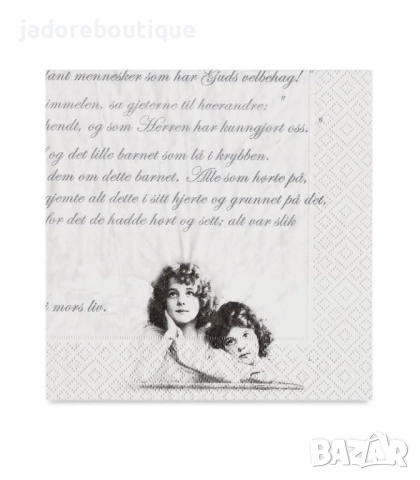 jadoreboutique
lant mennesker som har Guds velbehag! "
immelen, sa gjeterne til hverandre: "
hendt, og som Herren har kunngjort oss. "
og det lille barnet som lå i krybben.
dem om dette barnet. Alle som hørte på,
gjemte alt dette i sitt hjerte og grunnet på det.
for det de hadde hørt og sett; alt var slik
mors liv.
BAZAR